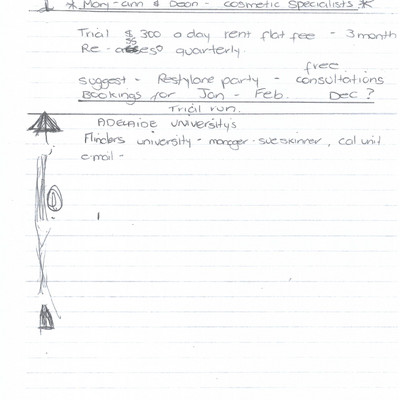 * Mary-ann & Deon - cosmetic Specialists *
Trial $ 300 a day rent flat fee - 3 month
Re - asses quarterly.
free
suggest - Restylane party - consultations
Bookings for Jan - Feb. Dec ?
Trial run.
ADELAIDE UNIVERSITY'S
Flinders university - manager - sue skinner, cal unit
email -